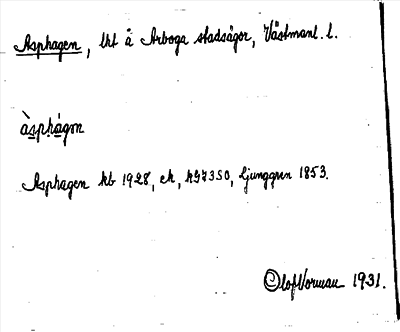 Asphagen, lht å Arboga stadsägor, Västmanl. l.
àsphágen
Asphagen kb 1928, ek, Ljunggren 1853.
Olof Norman 1931.